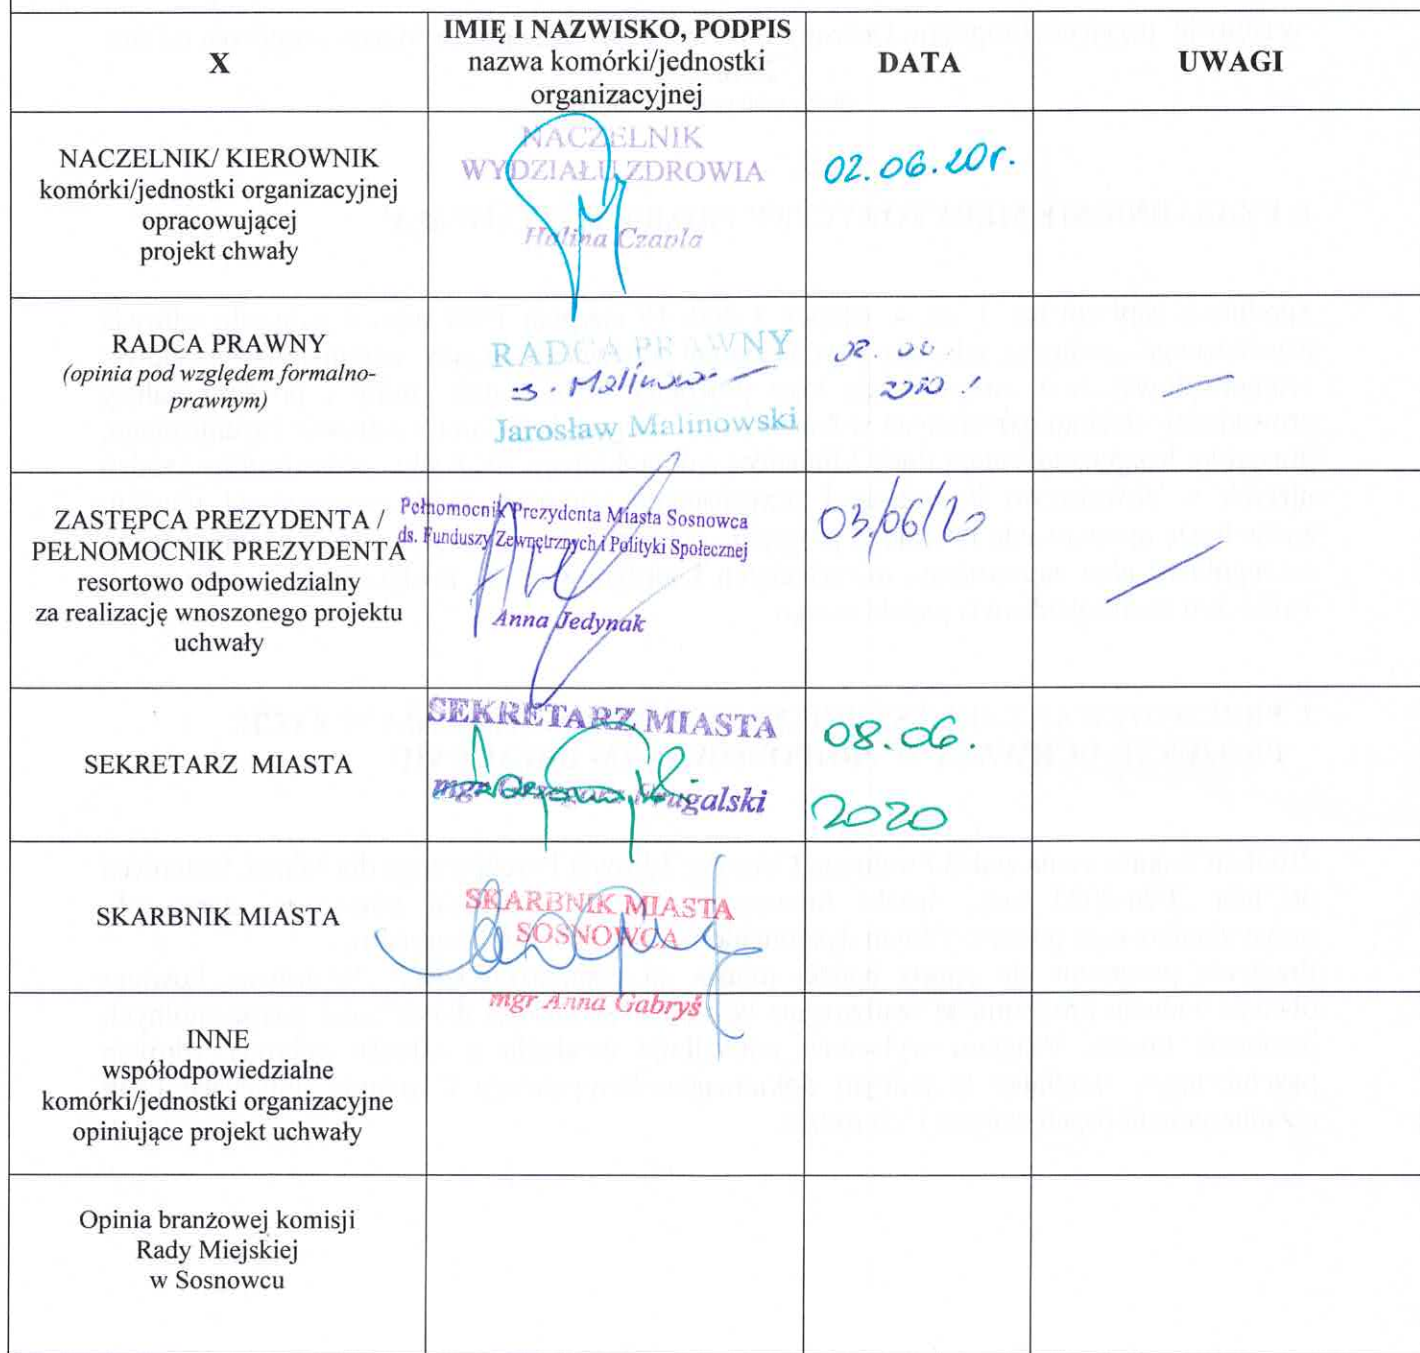 X
IMIĘ I NAZWISKO, PODPIS
nazwa komórki/jednostki
organizacyjnej
DATA
UWAGI
NACZELNIK/ KIEROWNIK
komórki/jednostki organizacyjnej
opracowującej
projekt chwały
NACZELNIK
WYDZIAŁU ZDROWIA
Halina Czapla
02.06.20r.
RADCA PRAWNY
(opinia pod względem formalno-
prawnym)
RADCA PRAWNY
Jarosław Malinowski
02.06
2020
ZASTĘPCA PREZYDENTA /
PEŁNOMOCNIK PREZYDENTA
resortowo odpowiedzialny
za realizację wnoszonego projektu
uchwały
Pełnomocnik Prezydenta Miasta Sosnowca
ds. Funduszy Zewnętrznych i Polityki Społecznej
Anna Jedynak
03/06/20
SEKRETARZ MIASTA
SEKRETARZ MIASTA
mgr Grzegorz
08.06.
2020
SKARBNIK MIASTA
SKARBNIK MIASTA
SOSNOWCA
mgr Anna Gabryś
INNE
współodpowiedzialne
komórki/jednostki organizacyjne
opiniujące projekt uchwały
Opinia branżowej komisji
Rady Miejskiej
w Sosnowcu